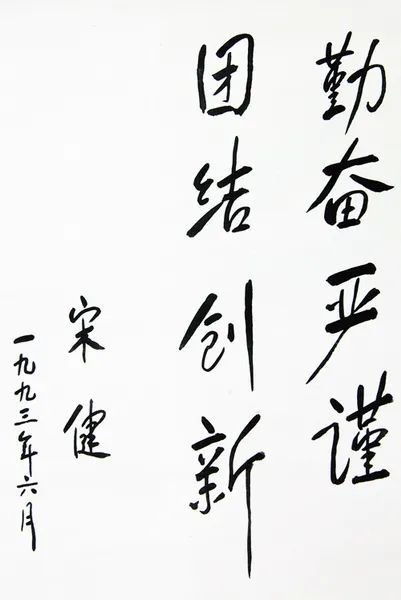 勤奋严谨
团结创新
宋健
一九九三年六月